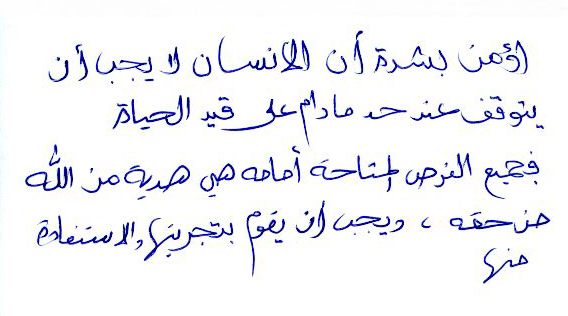 اؤمن بشدة أن الانسان لا يجب أن
يتوقف عند حد مادام على قيد الحياة
فجميع الفرص المتاحة أمامه هي هدية من الله
من حقه ، ويجب ان يقوم بتجربتها والاستفادة
منها